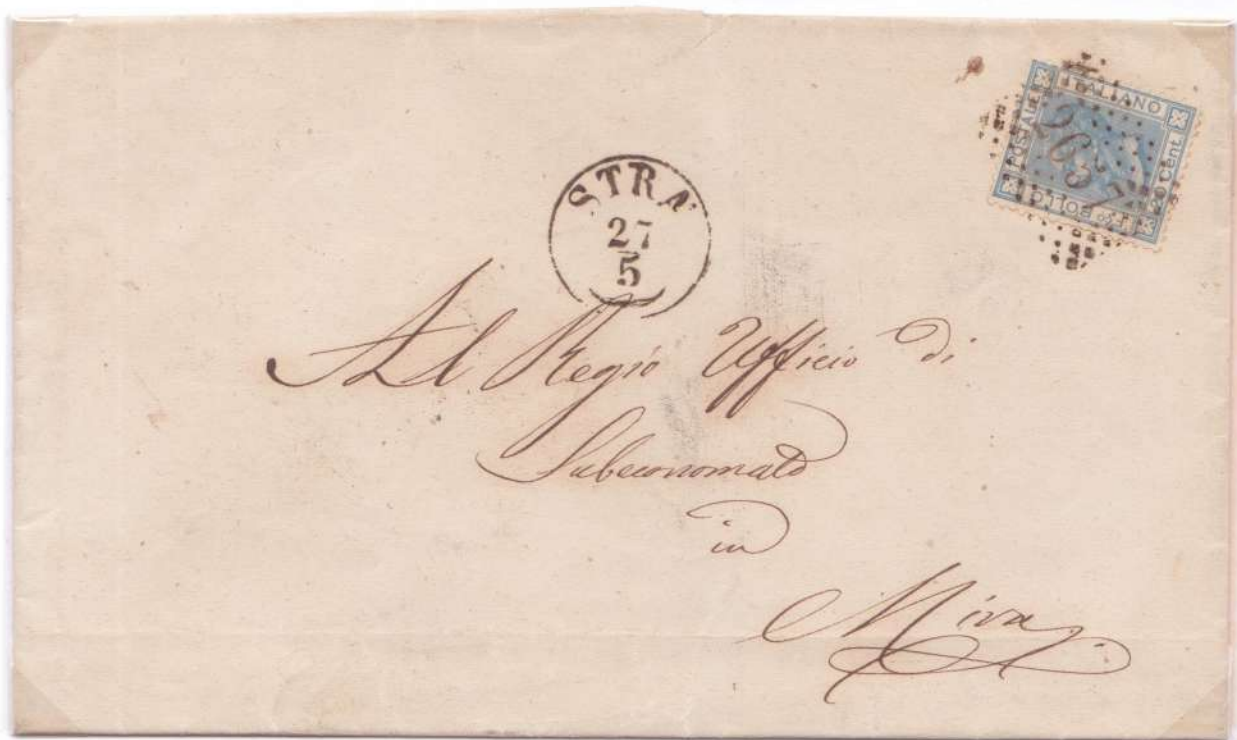 POSTALE
ITALIANO
20 Cent
BOLLO
STRA'
27
5
Al Regio Ufficio di
Subeconomato
in
Mira